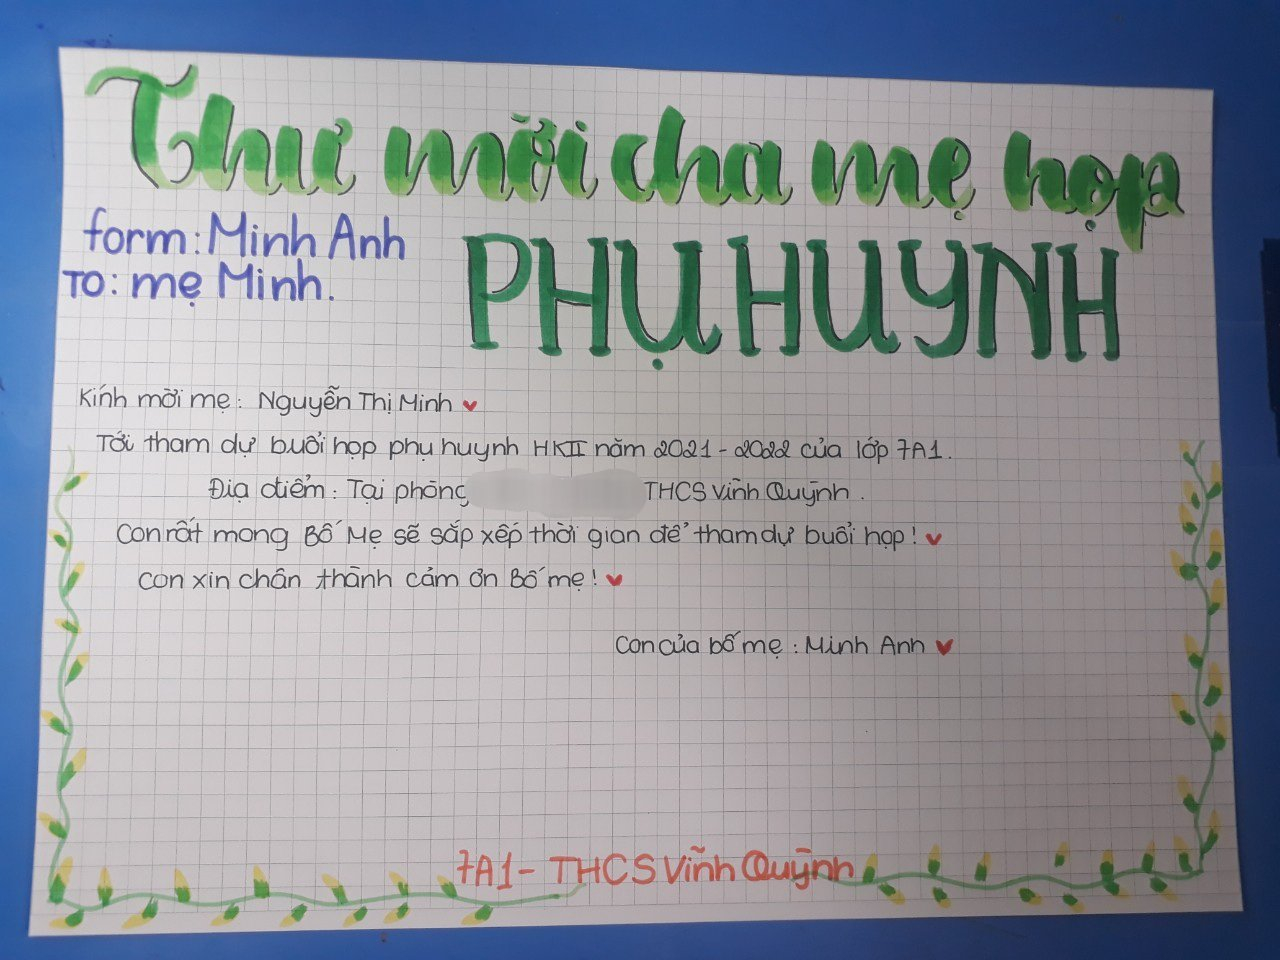 Thư mời cha mẹ họp
PHỤ HUYNH
form: Minh Anh
To: mẹ Minh.
Kính mời mẹ: Nguyễn Thị Minh
Tới tham dự buổi họp phụ huynh HKII năm 2021-2022 của lớp 7A1.
Địa điểm: Tại phòng THCS Vĩnh Quỳnh.
Con rất mong Bố Mẹ sẽ sắp xếp thời gian để tham dự buổi họp!
Con xin chân thành cảm ơn Bố mẹ!
Con của bố mẹ: Minh Anh
7A1- THCS Vĩnh Quỳnh